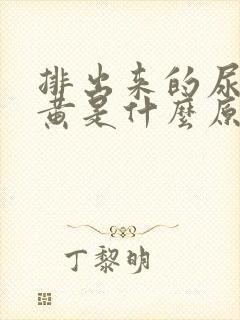 排出来的尿
黄是什麼原
丁黎明